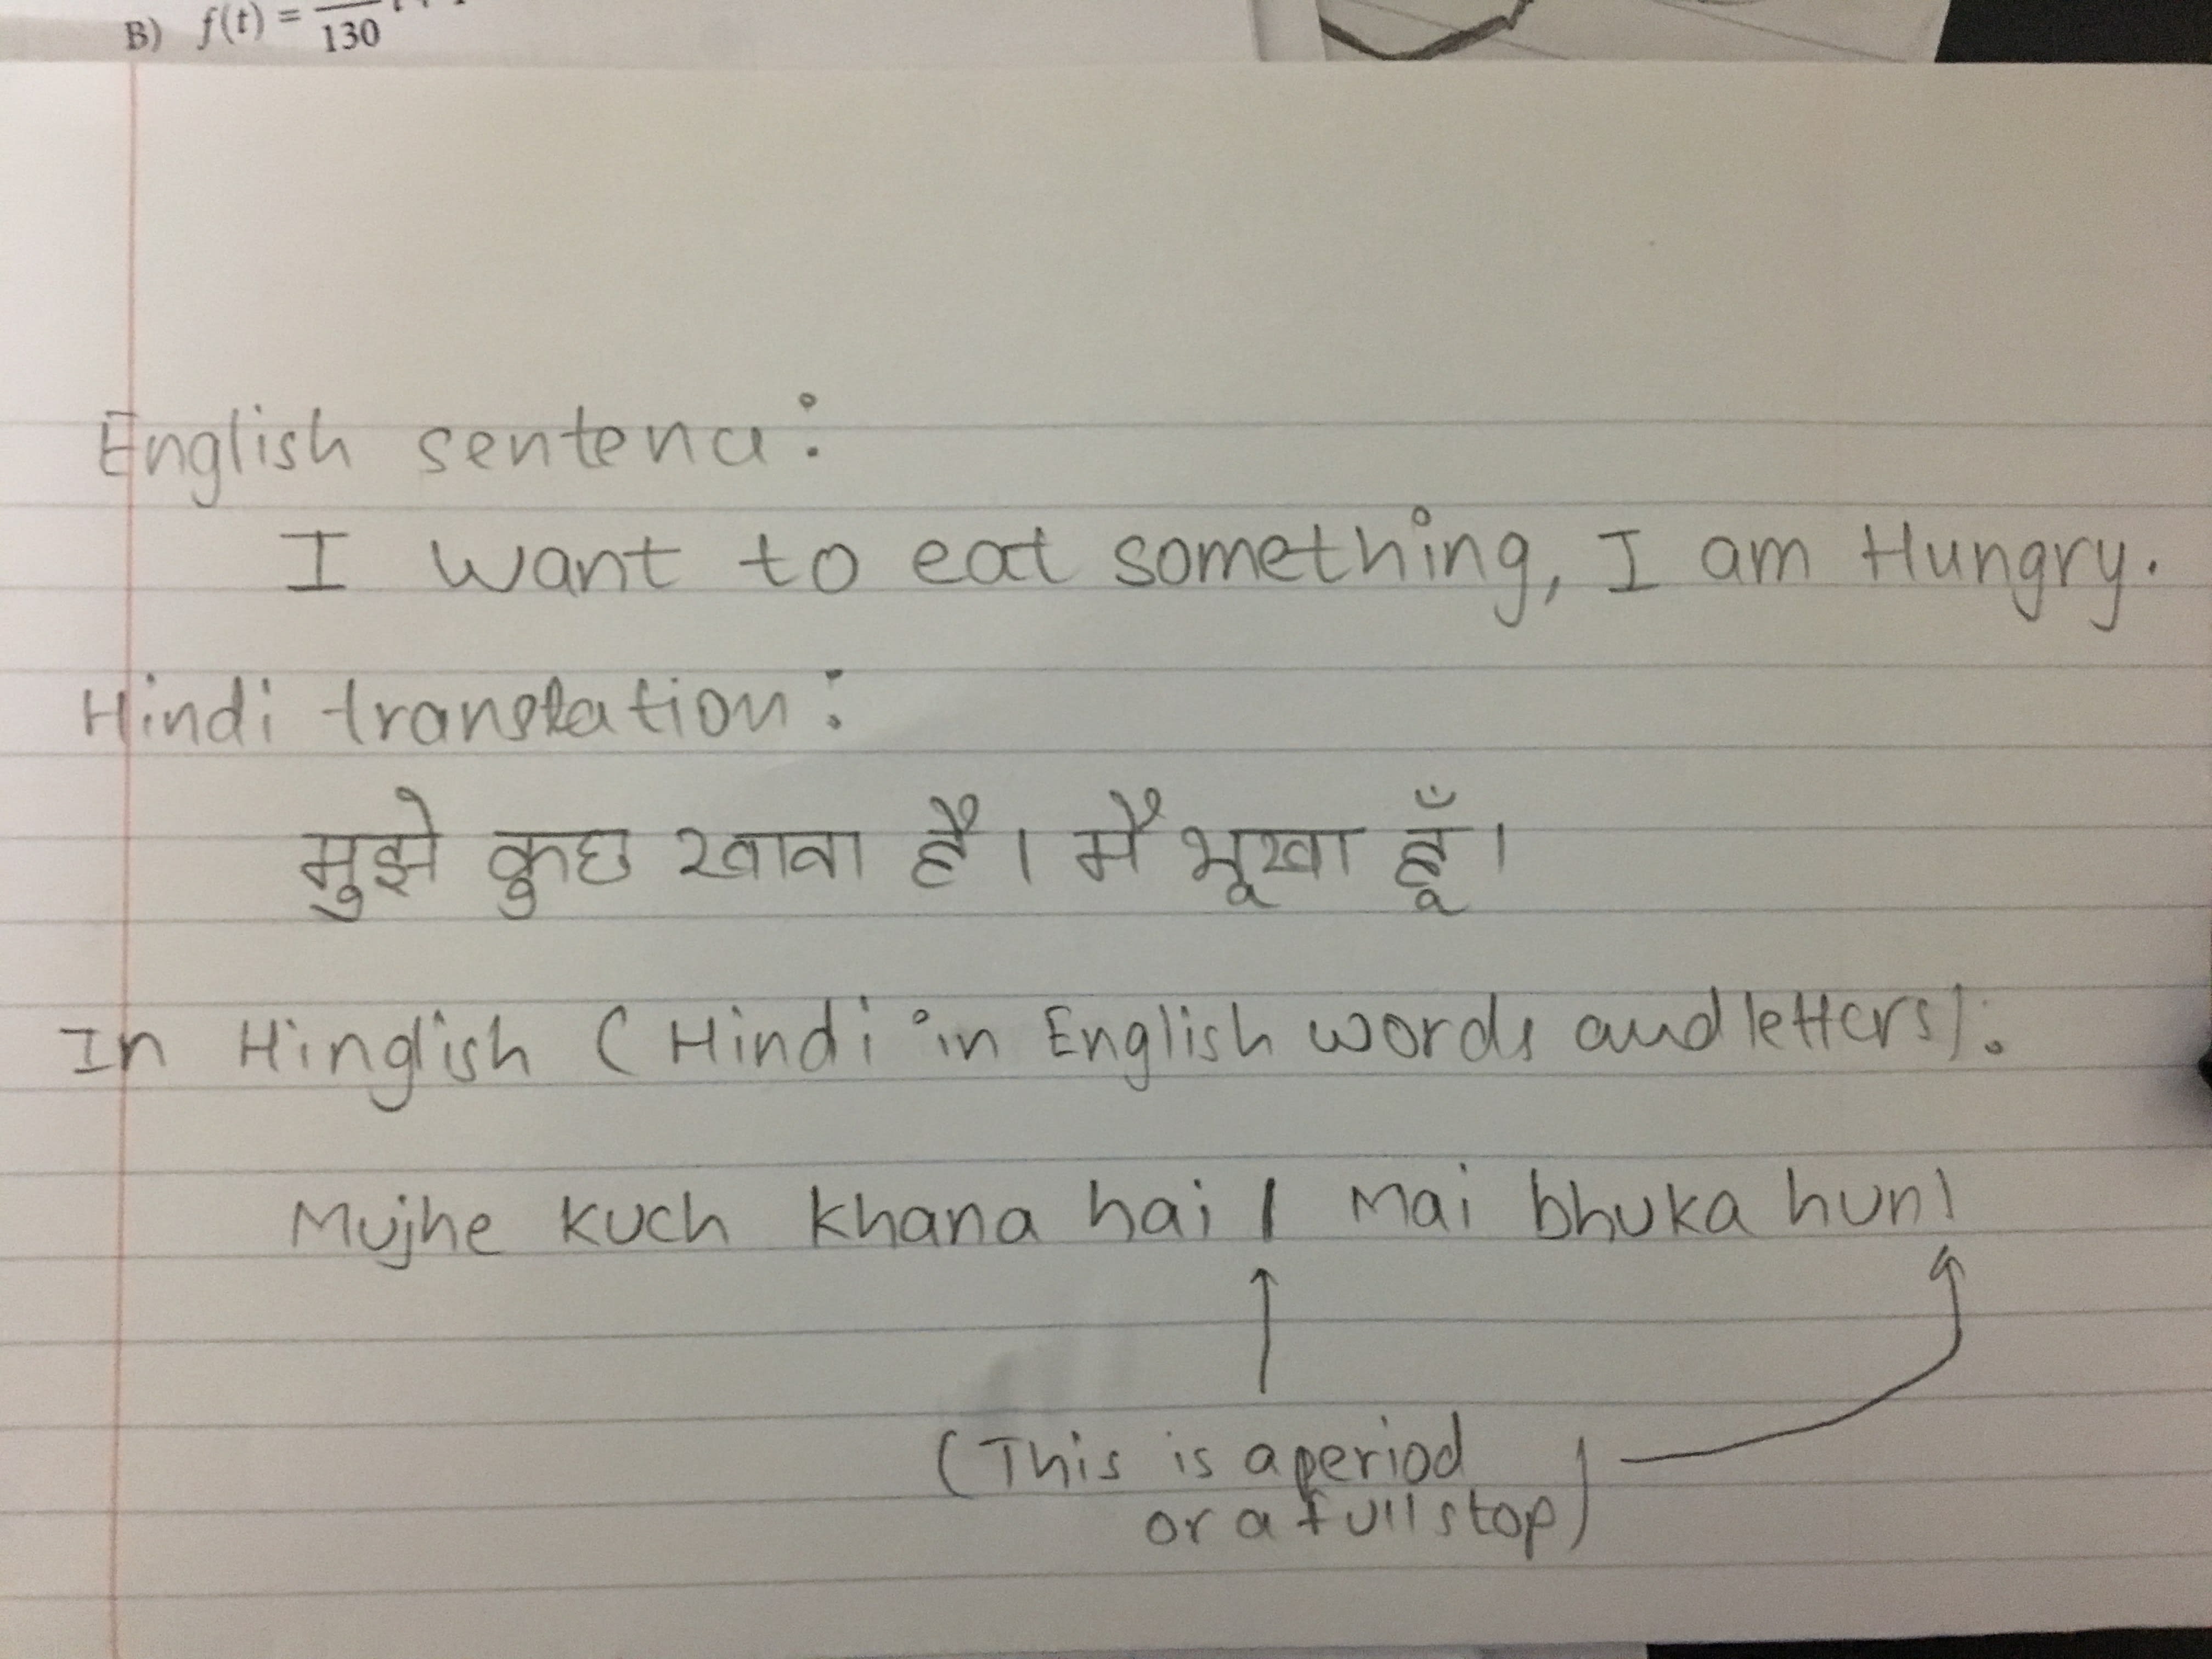 B) f(t) =
130
English sentence:
I want to eat something, I am Hungry.
Hindi translation:
मुझे कुछ खाना है। मैं भूखा हूँ।
In Hinglish (Hindi in English words and letters):
Mujhe kuch khana hai | Mai bhuka hun|
(This is a period
or a full stop)